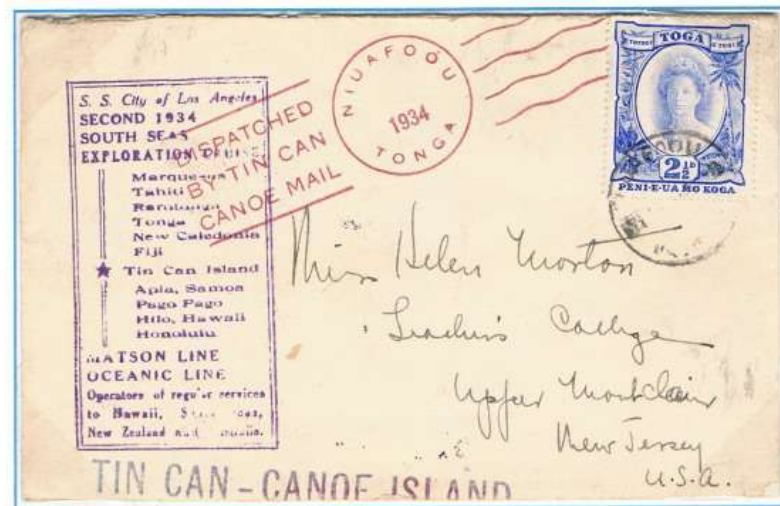 S. S. City of Los Angeles
SECOND 1934
SOUTH SEAS
EXPLORATION CRUISE
Marquesas
Tahiti
Rarotonga
Tonga
New Caledonia
Fiji
★ Tin Can Island
Apia, Samoa
Pago Pago
Hilo, Hawaii
Honolulu
MATSON LINE
OCEANIC LINE
Operators of regular services
to Hawaii,
New Zealand
DISPATCHED
BY TIN CAN
CANOE MAIL
NIUAFOOU
1934
TONGA
TOGA
2½D
PENI-E-UA MO KOGA
Miss Helen Morton
College
Upper Montclair
New Jersey
U.S.A.
TIN CAN - CANOE ISLAND